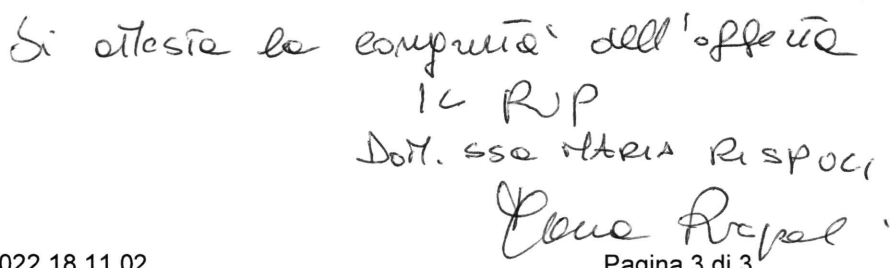 Si attesta la congruità dell'offerta
IL RUP
Dott.ssa MARIA RISPOLI
Maria Rispoli
2022 18.11.02
Pagina 3 di 3